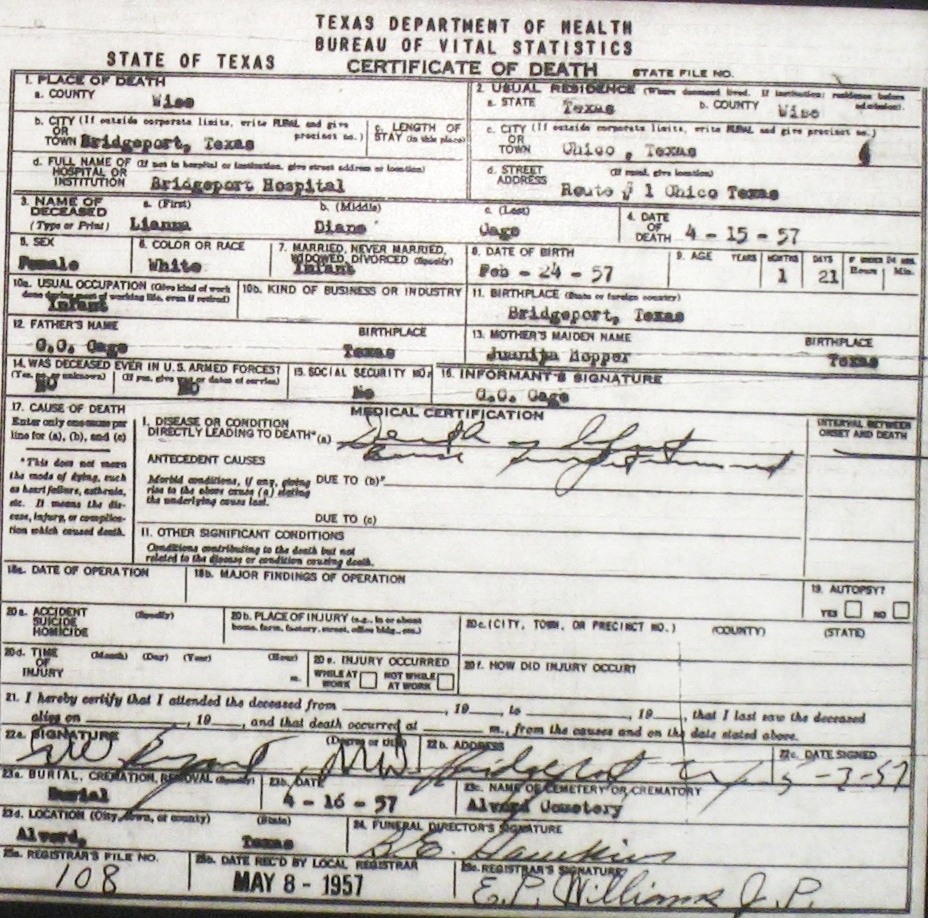 TEXAS DEPARTMENT OF HEALTH
BUREAU OF VITAL STATISTICS
STATE OF TEXAS CERTIFICATE OF DEATH STATE FILE NO.
1. PLACE OF DEATH
a. COUNTY Wise
2. USUAL RESIDENCE (Where deceased lived. If institution: residence before admission).
a. STATE Texas b. COUNTY Wise
b. CITY (If outside corporate limits, write RURAL and give precinct no.)
OR
TOWN Bridgeport, Texas
c. LENGTH OF
STAY (in this place)
c. CITY (If outside corporate limits, write RURAL and give precinct no.)
OR
TOWN Chico, Texas
d. FULL NAME OF (If not in hospital or institution, give street address or location)
HOSPITAL OR
INSTITUTION Bridgeport Hospital
d. STREET (If rural, give location)
ADDRESS Route # 1 Chico Texas
3. NAME OF DECEASED (Type or Print)
a. (First) b. (Middle) c. (Last)
Lianna Diane Gage
4. DATE OF DEATH 4 - 15 - 57
5. SEX
Female
6. COLOR OR RACE
White
7. MARRIED, NEVER MARRIED,
WIDOWED, DIVORCED (Specify)
Infant
8. DATE OF BIRTH
Feb - 24 - 57
9. AGE YEARS MONTHS DAYS IF UNDER 24 HRS.
Hours Min.
1 21
10a. USUAL OCCUPATION (Give kind of work
done during most of working life, even if retired)
Infant
10b. KIND OF BUSINESS OR INDUSTRY
11. BIRTHPLACE (State or foreign country)
Bridgeport, Texas
12. FATHER'S NAME BIRTHPLACE
G.O. Gage Texas
13. MOTHER'S MAIDEN NAME BIRTHPLACE
Juanita Hopper Texas
14. WAS DECEASED EVER IN U.S. ARMED FORCES?
(Yes, no, or unknown) (If yes, give war or dates of service)
No No
15. SOCIAL SECURITY NO.
No
16. INFORMANT'S SIGNATURE
G.O. Gage
17. CAUSE OF DEATH
Enter only one cause per
line for (a), (b), and (c)
*This does not mean
the mode of dying, such
as heart failure, asthenia,
etc. It means the dis-
ease, injury, or complica-
tion which caused death.
MEDICAL CERTIFICATION
INTERVAL BETWEEN
ONSET AND DEATH
I. DISEASE OR CONDITION
DIRECTLY LEADING TO DEATH* (a) Death of Infant
ANTECEDENT CAUSES Cause
Morbid conditions, if any, giving
rise to the above cause (a) stating
the underlying cause last.
DUE TO (b)
DUE TO (c)
11. OTHER SIGNIFICANT CONDITIONS
Conditions contributing to the death but not
related to the disease or condition causing death.
18a. DATE OF OPERATION
18b. MAJOR FINDINGS OF OPERATION
19. AUTOPSY?
YES NO
20a. ACCIDENT (Specify)
SUICIDE
HOMICIDE
20b. PLACE OF INJURY (e.g., in or about
home, farm, factory, street, office bldg., etc.)
20c. (CITY, TOWN, OR PRECINCT NO.) (COUNTY) (STATE)
20d. TIME (Month) (Day) (Year) (Hour)
OF
INJURY m.
20e. INJURY OCCURRED
WHILE AT WORK NOT WHILE AT WORK
20f. HOW DID INJURY OCCUR?
21. I hereby certify that I attended the deceased from , 19 , to , 19 , that I last saw the deceased
alive on , 19 , and that death occurred at m., from the causes and on the date stated above.
22a. SIGNATURE (Degree or title)
22b. ADDRESS
Bridgeport
22c. DATE SIGNED
23a. BURIAL, CREMATION, REMOVAL (Specify)
Burial
23b. DATE
4 - 16 - 57
23c. NAME OF CEMETERY OR CREMATORY
Alvord Cemetery
23d. LOCATION (City, town, or county) (State)
Alvord, Texas
24. FUNERAL DIRECTOR'S SIGNATURE
B.E. Hawkins
25a. REGISTRAR'S FILE NO.
108
25b. DATE REC'D BY LOCAL REGISTRAR
MAY 8 - 1957
25c. REGISTRAR'S SIGNATURE
E.P. Williams J.P.